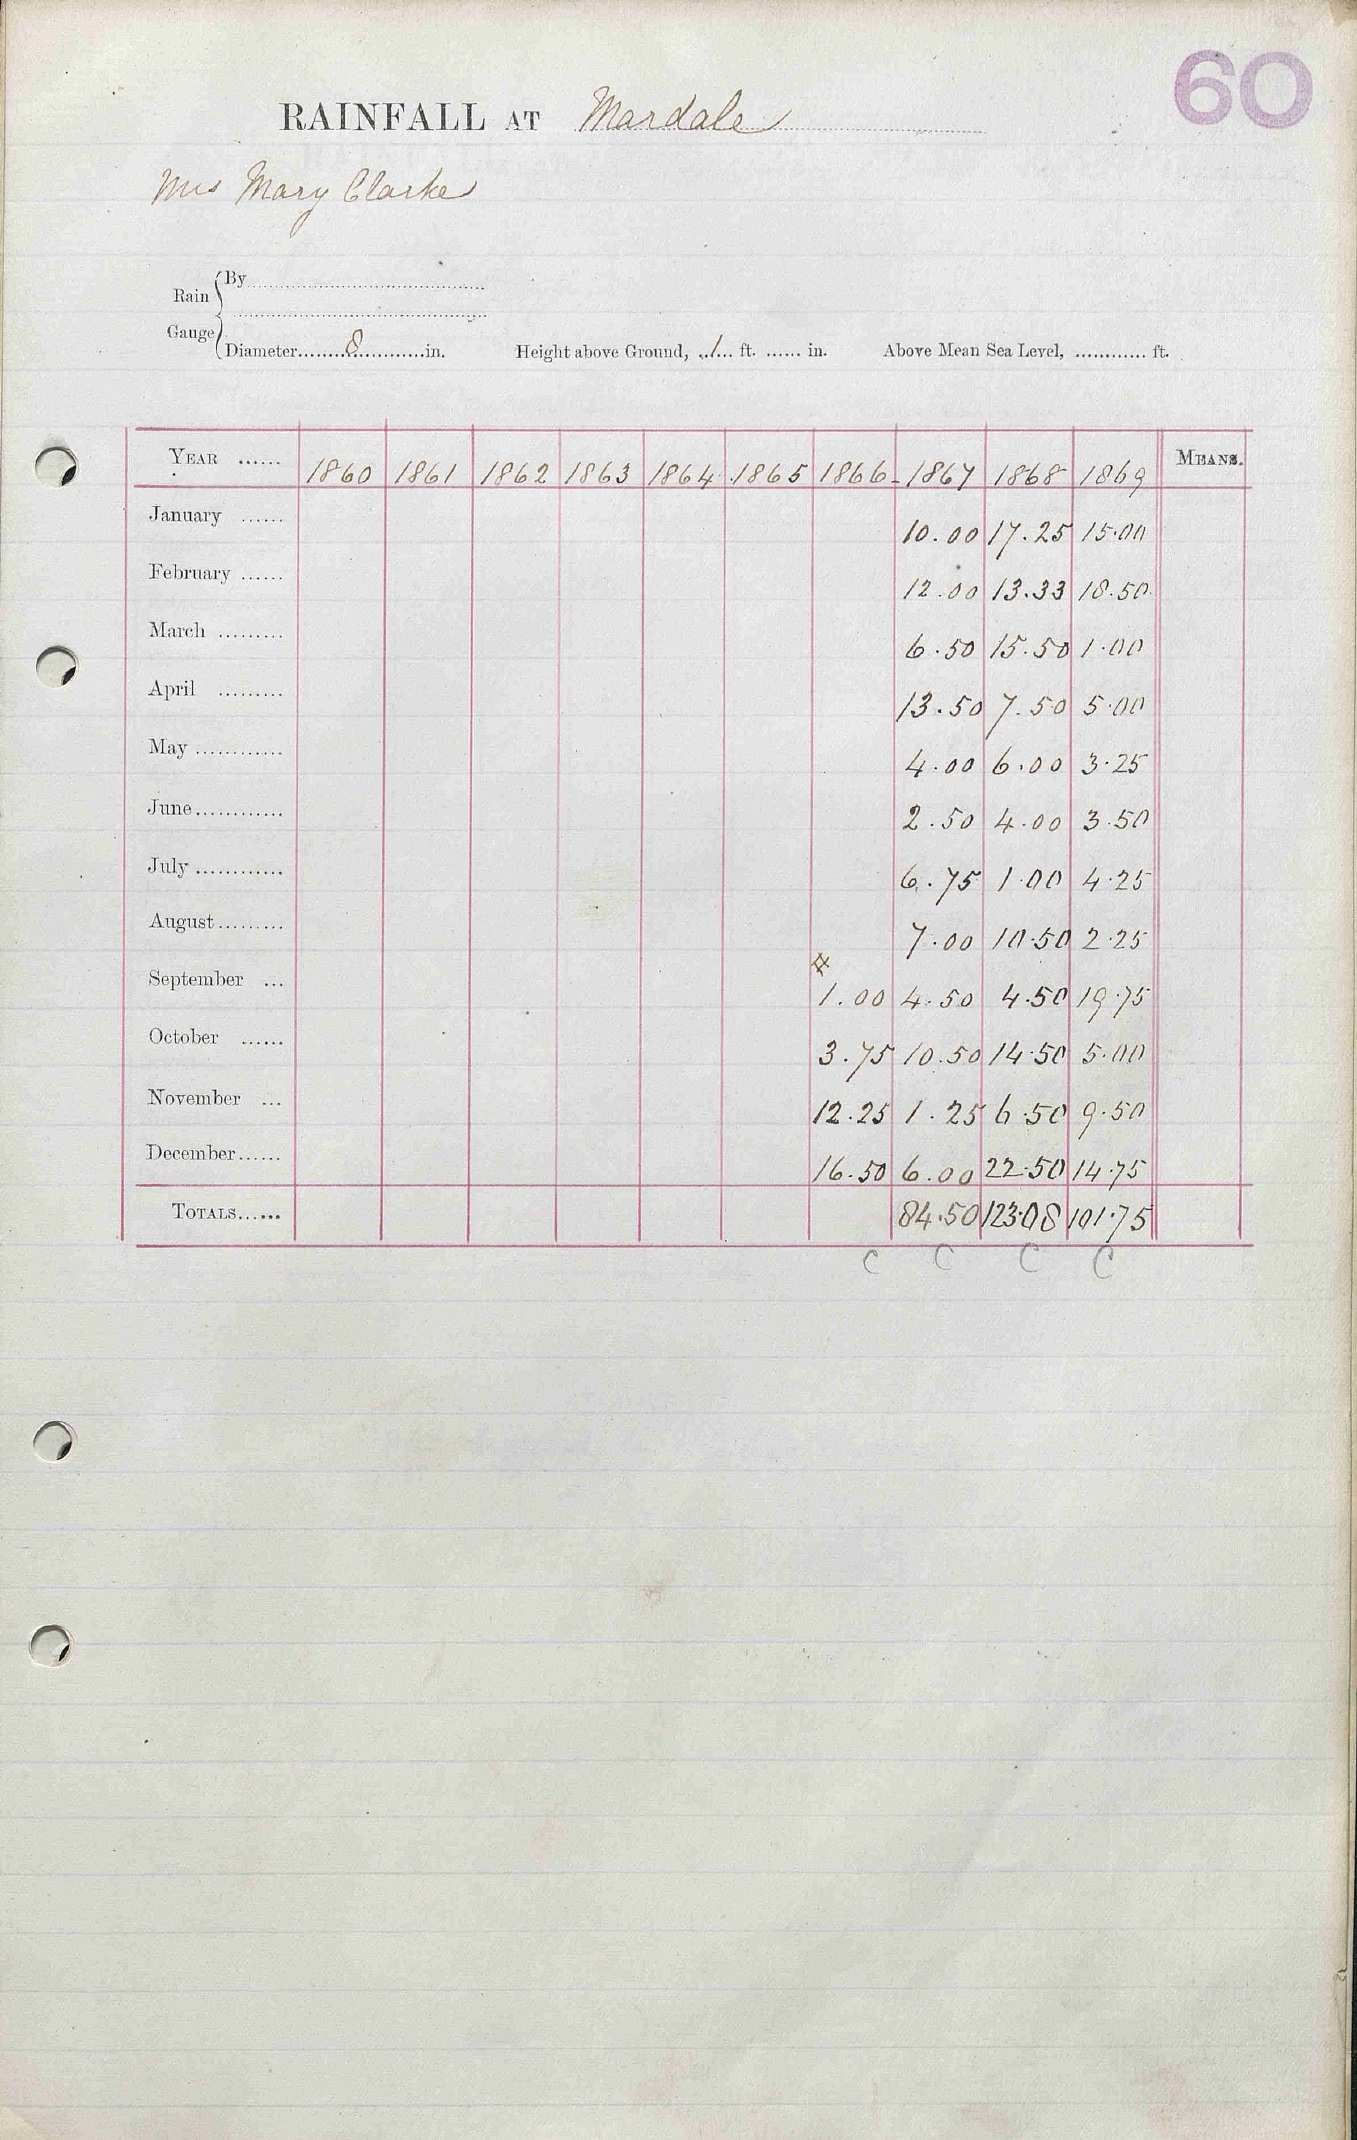 60
RAINFALL AT Mardale
Mrs Mary Clarke
Rain Gauge
By
Diameter 8 in. Height above Ground, 1 ft. in. Above Mean Sea Level, ft.
YEAR 1860 1861 1862 1863 1864 1865 1866 1867 1868 1869 MEANS.
January 10.00 17.25 15.00
February 12.00 13.33 18.50
March 6.50 15.50 1.00
April 13.50 7.50 5.00
May 4.00 6.00 3.25
June 2.50 4.00 3.50
July 6.75 1.00 4.25
August 7.00 10.50 2.25
September 1.00 4.50 4.50 19.75
October 3.75 10.50 14.50 5.00
November 12.25 1.25 6.50 9.50
December 16.50 6.00 22.50 14.75
TOTALS 84.50 123.08 101.75
C C C C